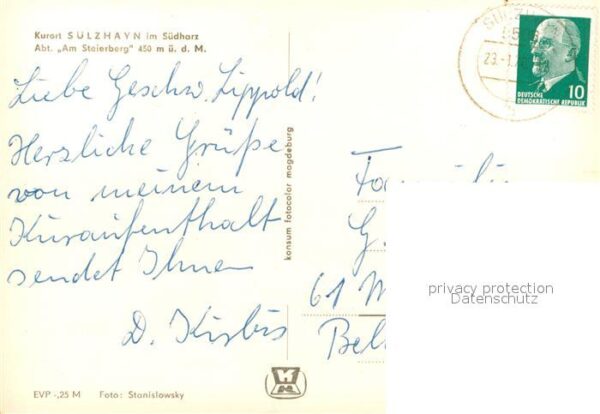 Kurort SÜLZHAYN im Südharz
Abt. „Am Steierberg" 450 m ü. d. M.
Liebe Geschw. Lippold!
Herzliche Grüße
von meinem
Kuraufenthalt
sendet Ihnen
D.
konsum fotocolor magdeburg
SÜLZ
23.-1.7
10
DEUTSCHE
DEMOKRATISCHE REPUBLIK
G.
61 M
Bel
privacy protection
Datenschutz
EVP -,25 M Foto: Stanislowsky